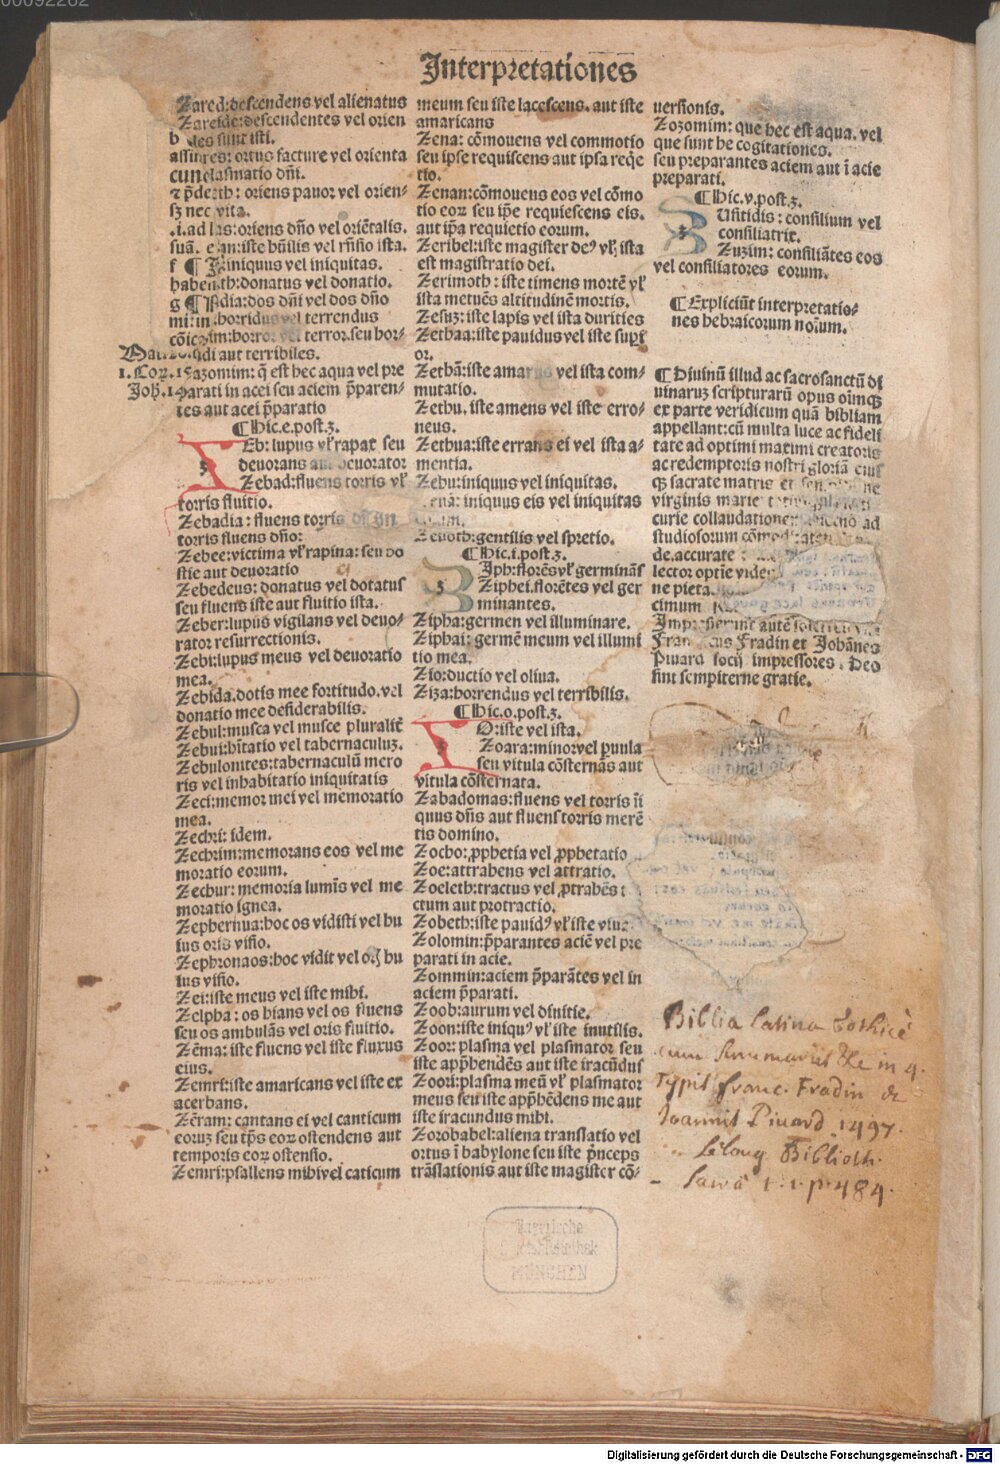 00092262
Interpretationes
Zared:descendens vel alienatus
Zareide:descendentes vel orien
des sunt isti.
assures: ortus facture vel orienta
plasmatio dñi.
oriens pauor vel orien-
nec vita.
oriens dño vel oriẽtalis.
iste hũilis vel rñsio ista.
iniquus vel iniquitas.
donatus vel donatio.
dia:dos dñi vel dos dño
horridus vel terrendus
im:horror vel terror.seu hor-
ridi aut terribiles.
Zazomim: q̃ est hec aqua vel pre
parati in acei seu aciem p̃paren-
tes aut acei p̃paratio
¶Hic.e.post.z.
Zeb: lupus vl' rapax seu
deuorans aut deuorator
Zebad:fluens torris vl'
torris fluitio.
Zebadia: fluens torris
torris fluens dño:
Zebee:victima vl' rapina: seu ho
stie aut deuoratio
Zebedeus: donatus vel dotatus
seu fluens iste aut fluitio ista.
Zeber:lupus vigilans vel deuo-
rator resurrectionis.
Zebi:lupus meus vel deuoratio
mea.
Zebida.dotis mee fortitudo.vel
donatio mee desiderabilis.
Zebul:musca vel musce pluralit̃
Zebul:hitatio vel tabernaculuz.
Zebulonites:tabernaculũ mero
ris vel inhabitatio iniquitatis
Zeci:memor mei vel memoratio
mea.
Zechri: idem.
Zechrim:memorans eos vel me
moratio eorum.
Zechur: memoria lumĩs vel me
moratio ignea.
Zephernua:hoc os vidisti vel hu
ius oris visio.
Zephronaos:hoc vidit vel hu
ius visio.
Zei:iste meus vel iste mihi.
Zelpha: os hians vel os fluens
seu os ambulãs vel oris fluitio.
Zẽma: iste fluens vel iste fluxus
eius.
Zemri:iste amaricans vel iste ex
acerbans.
Zẽram: cantans ei vel canticum
eoruz seu tp̃s eoꝝ ostendens aut
temporis eoꝝ ostensio.
Zemri:psallens mihi vel caticum
meum seu iste lacescens. aut iste
amaricans
Zena: cõmouens vel commotio
seu ipse requiscens aut ipsa reqẽ
tio.
Zenan:cõmouens eos vel cõmo
tio eoꝝ seu ip̃e requiescens eis.
aut ip̃a requietio eorum.
Zeribel:iste magister de⁹ vl' ista
est magistratio dei.
Zerimoth: iste timens mortẽ vl'
ista metuẽs altitudinẽ mortis.
Zesuz:iste lapis vel ista durities
Zethaa:iste pauidus vel iste sup̃i
or.
Zethã:iste amarus vel ista com-
mutatio.
Zethu. iste amens vel iste erro-
neus.
Zethua:iste errans ei vel ista a-
mentia.
Zehu:iniquus vel iniquitas.
iniquus eis vel iniquitas
Zenoth:gentilis vel spretio.
¶Hic.i.post.z.
Ziph:florẽs vl' germinãs
Ziphei.florẽtes vel ger
minantes.
Zipha:germen vel illuminare.
Ziphai: germẽ meum vel illumi
tio mea.
Zio:ductio vel oliua.
Ziza:horrendus vel terribilis.
¶Hic.o.post.z.
Zo:iste vel ista.
Zoara:minor vel puula
seu vitula cõsternãs aut
vitula cõsternata.
Zabadomas:fluens vel torris ĩi
quus dñs aut fluens torris merẽ
tis domino.
Zocho: ꝓphetia vel ꝓphetatio
Zoe:attrahens vel attratio.
Zoeleth:tractus vel ꝓtrahẽs
ctum aut protractio.
Zobeth:iste pauid⁹ vl' iste
Zolomin:p̃parantes aciẽ vel pre
parati in acie.
Zommin:aciem p̃parãtes vel in
aciem p̃parati.
Zoob:aurum vel diuitie.
Zoon:iste iniqu⁹ vl' iste inutilis.
Zoor: plasma vel plasmator seu
iste app̃hendẽs aut iste iracũdus
Zoori:plasma meũ vl' plasmator
meus seu iste app̃hẽdens me aut
iste iracundus mihi.
Zorobabel:aliena translatio vel
ortus ĩ babylone seu iste p̃nceps
trãslationis aut iste magister cõ-
uersionis.
Zozomim: que hec est aqua. vel
que sunt he cogitationes.
seu preparantes aciem aut ĩ acie
preparati.
¶Hic.v.post.z.
Zusitidis: consilium vel
consiliatrix.
Zuzim: consiliãtes eos
vel consiliatores eorum.
¶Expliciũt interpretatio-
nes hebraicorum noĩum.
¶Diuinũ illud ac sacrosanctũ di
uinaruz scripturarũ opus oĩmqz
ex parte veridicum quã bibliam
appellant:cũ multa luce ac fideli
tate ad optimi maximi creatoris
ac redemptoris nostri gloriã eius
qz sacrate matris et
virginis marie
curie collaudationem ad
studiosorum
de.accurate
lector optie
ne pieta
cimum
Impresserunt autẽ
Franciscus Fradin et Johãnes
Piuard socij impressores. Deo
sint sempiterne gratie.
Biblia latina Gothicè
cum summariis &c in 4.
Typis franc. Fradin &
Joannis Piuard 1497.
Lelong Biblioth.
Sacrâ t. 1. p. 484.
Bayerische
Staatsbibliothek
MÜNCHEN
Digitalisierung gefördert durch die Deutsche Forschungsgemeinschaft - DFG